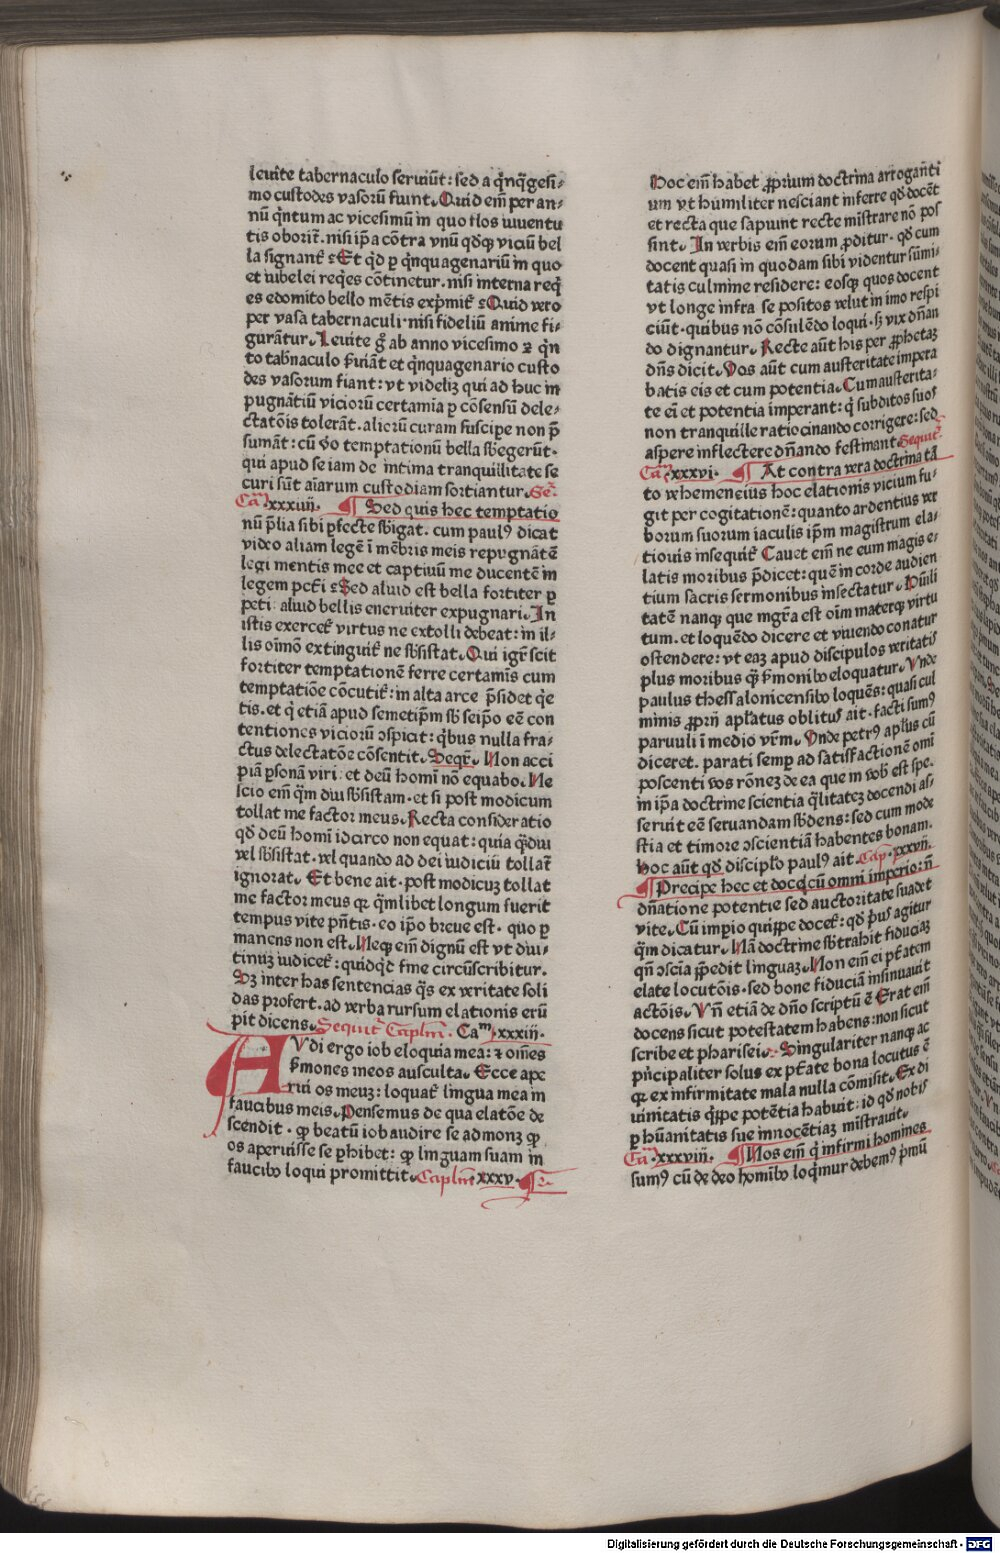 leuite tabernaculo seruiūt: sed a q̄nq̄gesi⸗
mo custodes vasorū fiunt. Quid em̄ per an⸗
nū q̄ntum ac vicesimū in quo flos iuuentu
tis oborit̄. nisi ip̄a cōtra vnū qdqꝫ viciū bel
la signant̄ Et qd p q̄nquagenariū in quo
et iubelei req̄es cōtinetur. nisi interna req̄
es edomito bello mētis exp̄mit̄ Quid vero
per vasa tabernaculi. nisi fideliū anime fi⸗
gurātur. Leuite g̃ ab anno vicesimo ⁊ q̄n
to tab̄naculo s̄uiāt et q̄nquagenario custo
des vasorum fiant: vt videlicꝫ qui ad huc in
pugnātiū viciorū certamīa p cōsensū dele⸗
ctatōis tolerāt. aliorū curam suscipe non p̄
sumāt: cū v̄o temptationū bella sb̄egerūt.
qui apud se iam de intima tranquillitate se
curi sūt aīarum custodiam sortiantur. Se.
Ca. xxxiiij. ¶ Sed quis hec temptatio
nū p̄lia sibi pfecte sb̄igat. cum paulꝰ dicat
video aliam legē ī mēbris meis repugnātē
legi mentis mee et captiuū me ducentē in
legem pcti Sed aliud est bella fortiter p
peti: aliud bellis eneruiter expugnari. In
istis exercet̄ virtus ne extolli debeat: in il⸗
lis oīmō extinguit̄ ne sb̄sistat. Qui igr̄ scit
fortiter temptationē ferre certamīs cum
temptatiōe cōcutit̄: in alta arce p̄sidet q̄e
tis. et q̄ etiā apud semetip̄m sb̄ seip̄o eē con
tentiones viciorū ↄspicit: q̄bus nulla fra⸗
ctus delectatōe cōsentit. Seqr̄. Non acci
piā p̄sonā viri: et deū homī nō equabo. Ne
scio em̄ q̄m diu sb̄sistam. et si post modicum
tollat me factor meus. Recta consideratio
qd deū homī idcirco non equat: quia q̄diu
vel sb̄sistat. vel quando ad dei iudiciū tollat̄
ignorat. Et bene ait. post modicuꝫ tollat
me factor meus qꝛ q̄mlibet longum fuerit
tempus vite p̄ntis. eo ip̄o breue est. quo p
manens non est. Neqꝫ em̄ dignū est vt diui⸗
tinuꝫ iudicet̄: quidqd fine circūscribitur.
Sꝫ inter has sentencias q̄s ex veritate soli
das profert. ad verba rursum elationis erū
pit dicens. Sequit̄ Caplm̄. Caᵐ. xxxiij.
AVdi ergo iob eloquia mea: ⁊ om̄es
s̄mones meos ausculta. Ecce ape
rui os meuꝫ: loquat̄ lingua mea in
faucibus meis. Pensemus de qua elatōe de
scendit. qꝙ beatū iob audire se admonꝫ qꝙ
os aperuisse se phibet: qꝙ linguam suam in
faucibꝫ loqui promittit. Caplm̄ xxxv. ¶ Se.
Hoc em̄ habet ꝓprium doctrina arrogāti
um vt humiliter nesciant inferre qd docēt
et recta que sapiunt recte mīstrare nō pos
sint. In verbis em̄ eorum ꝓditur. qd cum
docent quasi in quodam sibi videntur sūmi⸗
tatis culmine residere: eosqꝫ quos docent
vt longe infra se positos velut in imo respi
ciūt. quibus nō cōsulēdo loqui. sꝫ vix dn̄an
do dignantur. Recte aūt his per ꝓphetaꝫ
dn̄s dicit. Vos aūt cum austeritate impera
batis eis et cum potentia. Cum austerita⸗
te eī et potentia imperant: q̄ subditos suos
non tranquille ratiocinando corrigere: sed
aspere inflectere dn̄ando festinant. Sequit̄.
Ca. xxxvi. ¶ At contra vera doctrina tā
to vehemencius hoc elationis vicium fu⸗
git per cogitationē: quanto ardentius ver
borum suorum iaculis ip̄m magistrum ela⸗
tionis insequit̄ Cauet em̄ ne eum magis e⸗
latis moribus p̄dicet: quē in corde audien
tium sacris sermonibus insectatur. Humili
tatē nanqꝫ que mgr̄a est oīm materqꝫ virtu
tum. et loquēdo dicere et viuendo conatur
ostendere: vt eaꝫ apud discipulos veritatis
plus moribus q̄ꝫ s̄monibꝫ eloquatur. Vnde
paulus thessalonicensibꝫ loquēs: quasi cul
minis ꝓprij apl̄atus oblitus ait. facti sumꝰ
paruuli ī medio vr̄m. Vnde petrꝰ apl̄us cū
diceret. parati semp ad satisfactionē omī
poscenti vos rōneꝫ de ea que in vob̄ est spe.
in ip̄a doctrine scientia q̄litateꝫ docendi as⸗
seruit eē seruandam sb̄dens: sed cum mode
stia et timore ↄscientiā habentes bonam.
Hoc aūt qd discipl̄o paulꝰ ait. Cap. xxxvij.
¶ Precipe hec et doce cū omni imperio: n̄
dn̄atione potentie sed auctoritate suadet
vite. Cū imꝑio quippe docet̄: qd p̄us agitur
q̄m dicatur. Nā doctrine sb̄trahit fiduciaꝫ
qn̄ ↄscia p̄pedit linguaꝫ. Non em̄ ei p̄tatem
elate locutōis. sed bone fiduciā insinuauit
actōis. Vn̄ etiā de dn̄o scriptū ē Erat em̄
docens sicut potestatem habens: non sicut
scribe et pharisei. Singulariter nanqꝫ ac
p̄ncipaliter solus ex p̄tate bona locutus ē
qꝛ ex infirmitate mala nulla cōmisit. Ex di
uinitatis q̄ppe potētia habuit: id qd nobis
p hūanitatis sue innocētiaꝫ mīstrauit.
Ca. xxxviij. ¶ Nos em̄ q̄ infirmi homines
sumꝰ cū de deo homībꝫ loq̄mur debemꝰ p̄mū
Digitalisierung gefördert durch die Deutsche Forschungsgemeinschaft - DFG